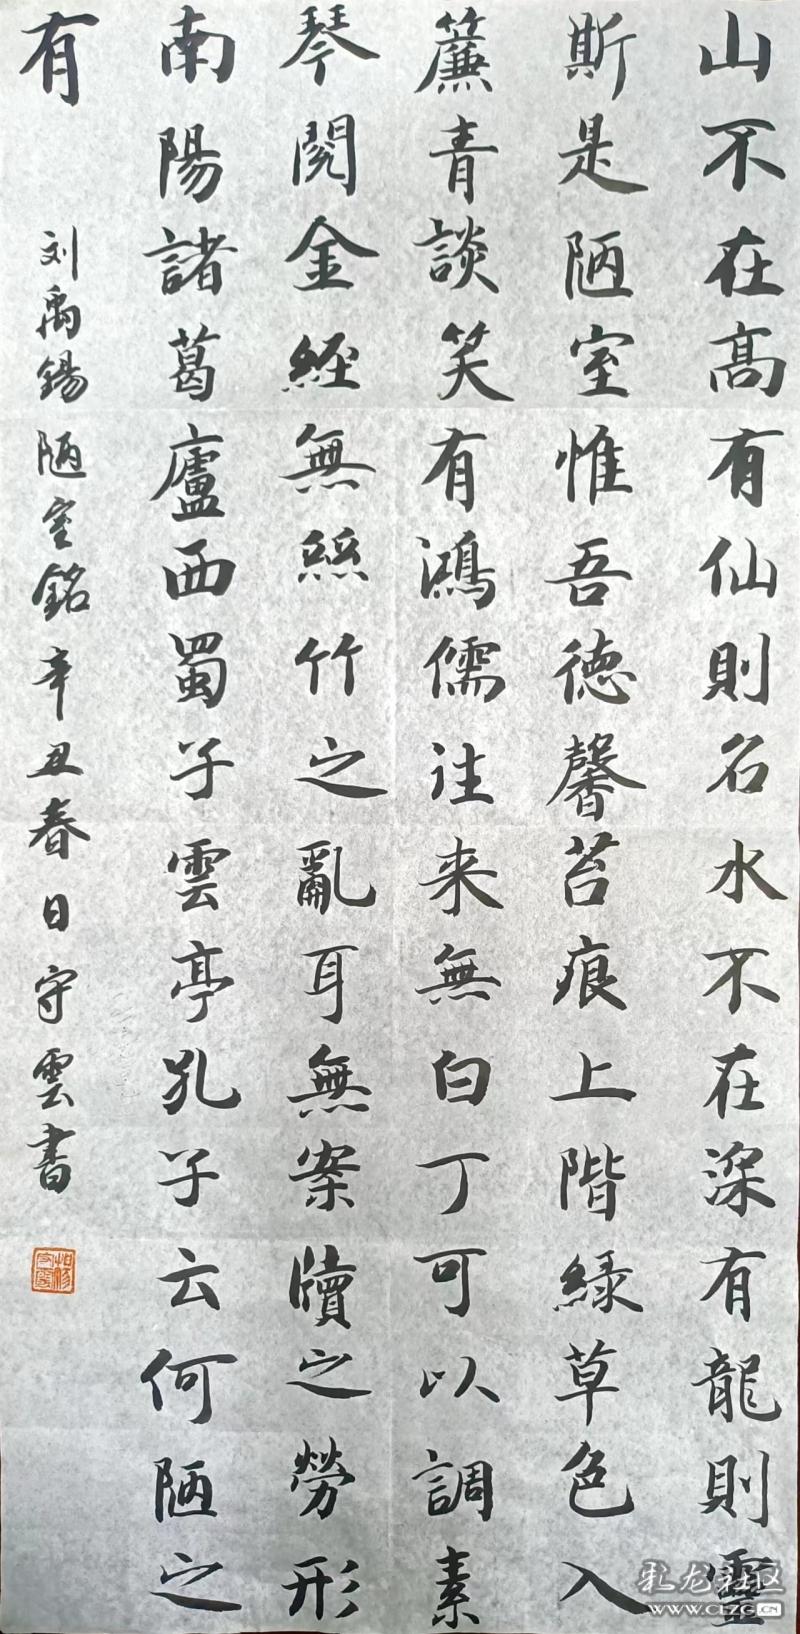 山不在高有仙則名水不在深有龍則靈
斯是陋室惟吾德馨苔痕上階緑草色入
簾青談笑有鴻儒往来無白丁可以調素
琴閱金經無絲竹之亂耳無案牘之勞形
南陽諸葛廬西蜀子雲亭孔子云何陋之
有
刘禹锡陋室銘辛丑春日守雲書
彩龙社区
www.CLZG.CN